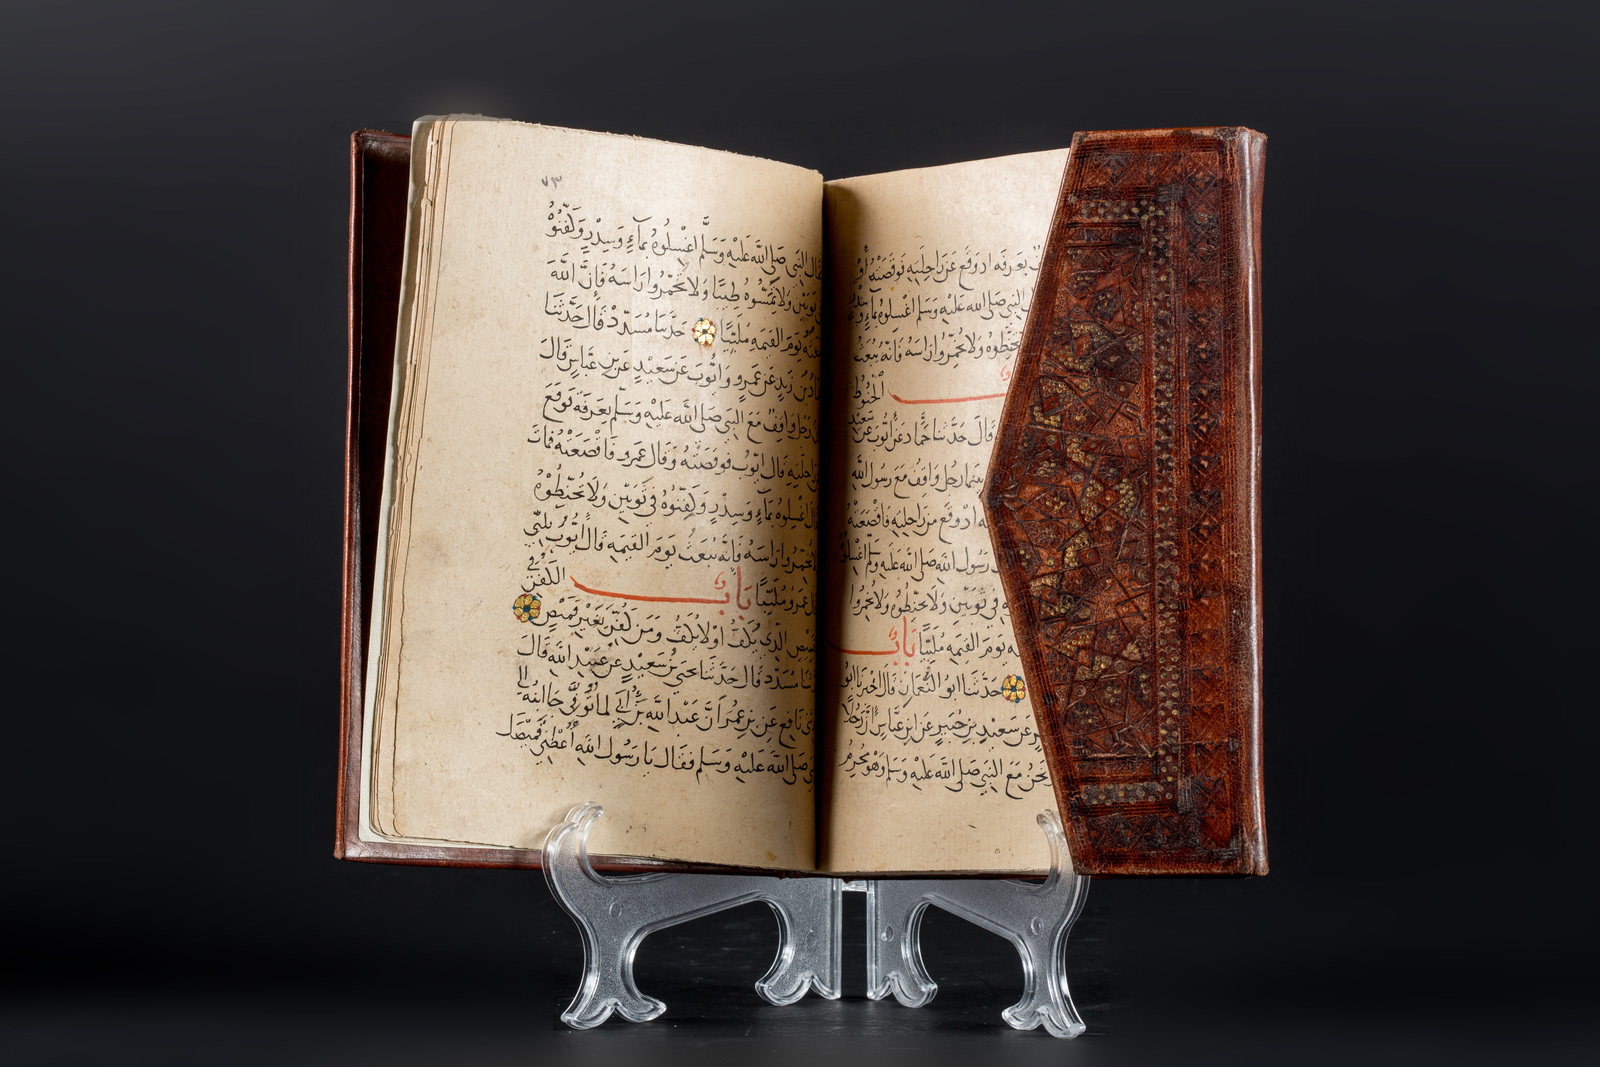 بعرفه اذ وقع عن راحلته فوقصته او
النبي صلى الله عليه وسلم اغسلوه بماء وسدر
تحنطوه ولا تخمروا راسه فانه يبعث
الحنوط
قال حدثنا حماد عن ايوب عن سعيد
بينما رجل واقف مع رسول الله
اذ وقع من راحلته فاقصعته
رسول الله صلى الله عليه وسلم اغسلوه
في ثوبين ولا تحنطوه ولا تخمروا
يوم القيمه ملبيا باب
حدثنا ابو النعمان قال اخبرنا ابو
عن سعيد بن جبير عن ابن عباس ان رجلا
ونحن مع النبي صلى الله عليه وسلم وهو محرم
٧٣
فقال النبي صلى الله عليه وسلم اغسلوه بماء وسدر وكفنوه
ثوبين ولا تمسوه طيبا ولا تخمروا راسه فان الله
يبعثه يوم القيمه ملبيا حدثنا مسدد قال حدثنا
حماد بن زيد عن عمرو وايوب عن سعيد عن ابن عباس قال
كان رجل واقف مع النبي صلى الله عليه وسلم بعرفه فوقع
عن راحلته قال ايوب فوقصته وقال عمرو فاقصعته فمات
فقال اغسلوه بماء وسدر وكفنوه في ثوبين ولا تحنطوه
ولا تخمروا راسه فانه يبعث يوم القيمه قال ايوب يلبي
وقال عمرو ملبيا باب الكفن في
القميص الذي يكف او لا يكف ومن كفن بغير قميص
حدثنا مسدد قال حدثنا يحيى بن سعيد عن عبيد الله قال
حدثني نافع عن بن عمر ان عبد الله بن ابي لما توفي جا ابنه الى
النبي صلى الله عليه وسلم فقال يا رسول الله اعطني قميصك